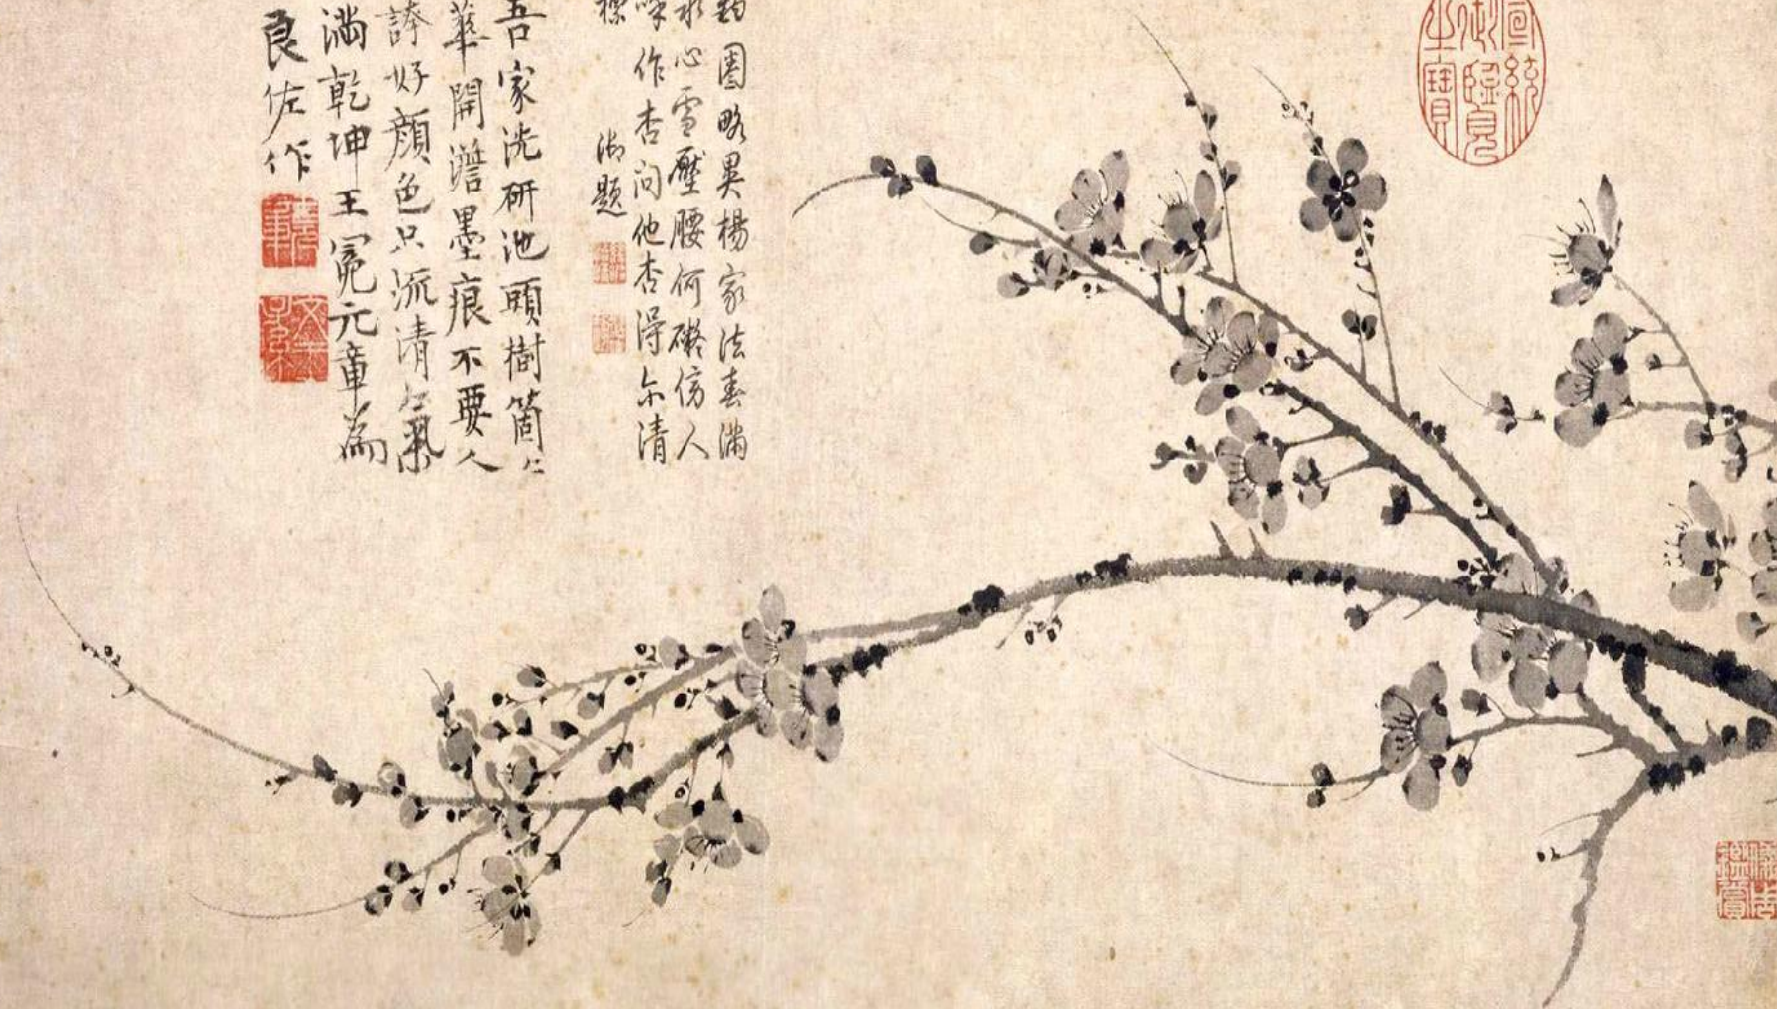 宣統御覽之寶
圈略異楊家法春滿
心雪壓腰何礙傍人
作杏問他杏得尔清
標
御題
吾家洗研池頭樹箇〻
華開澹墨痕不要人
誇好顏色只流清氣
滿乾坤王冕元章為
良佐作
文王子孫